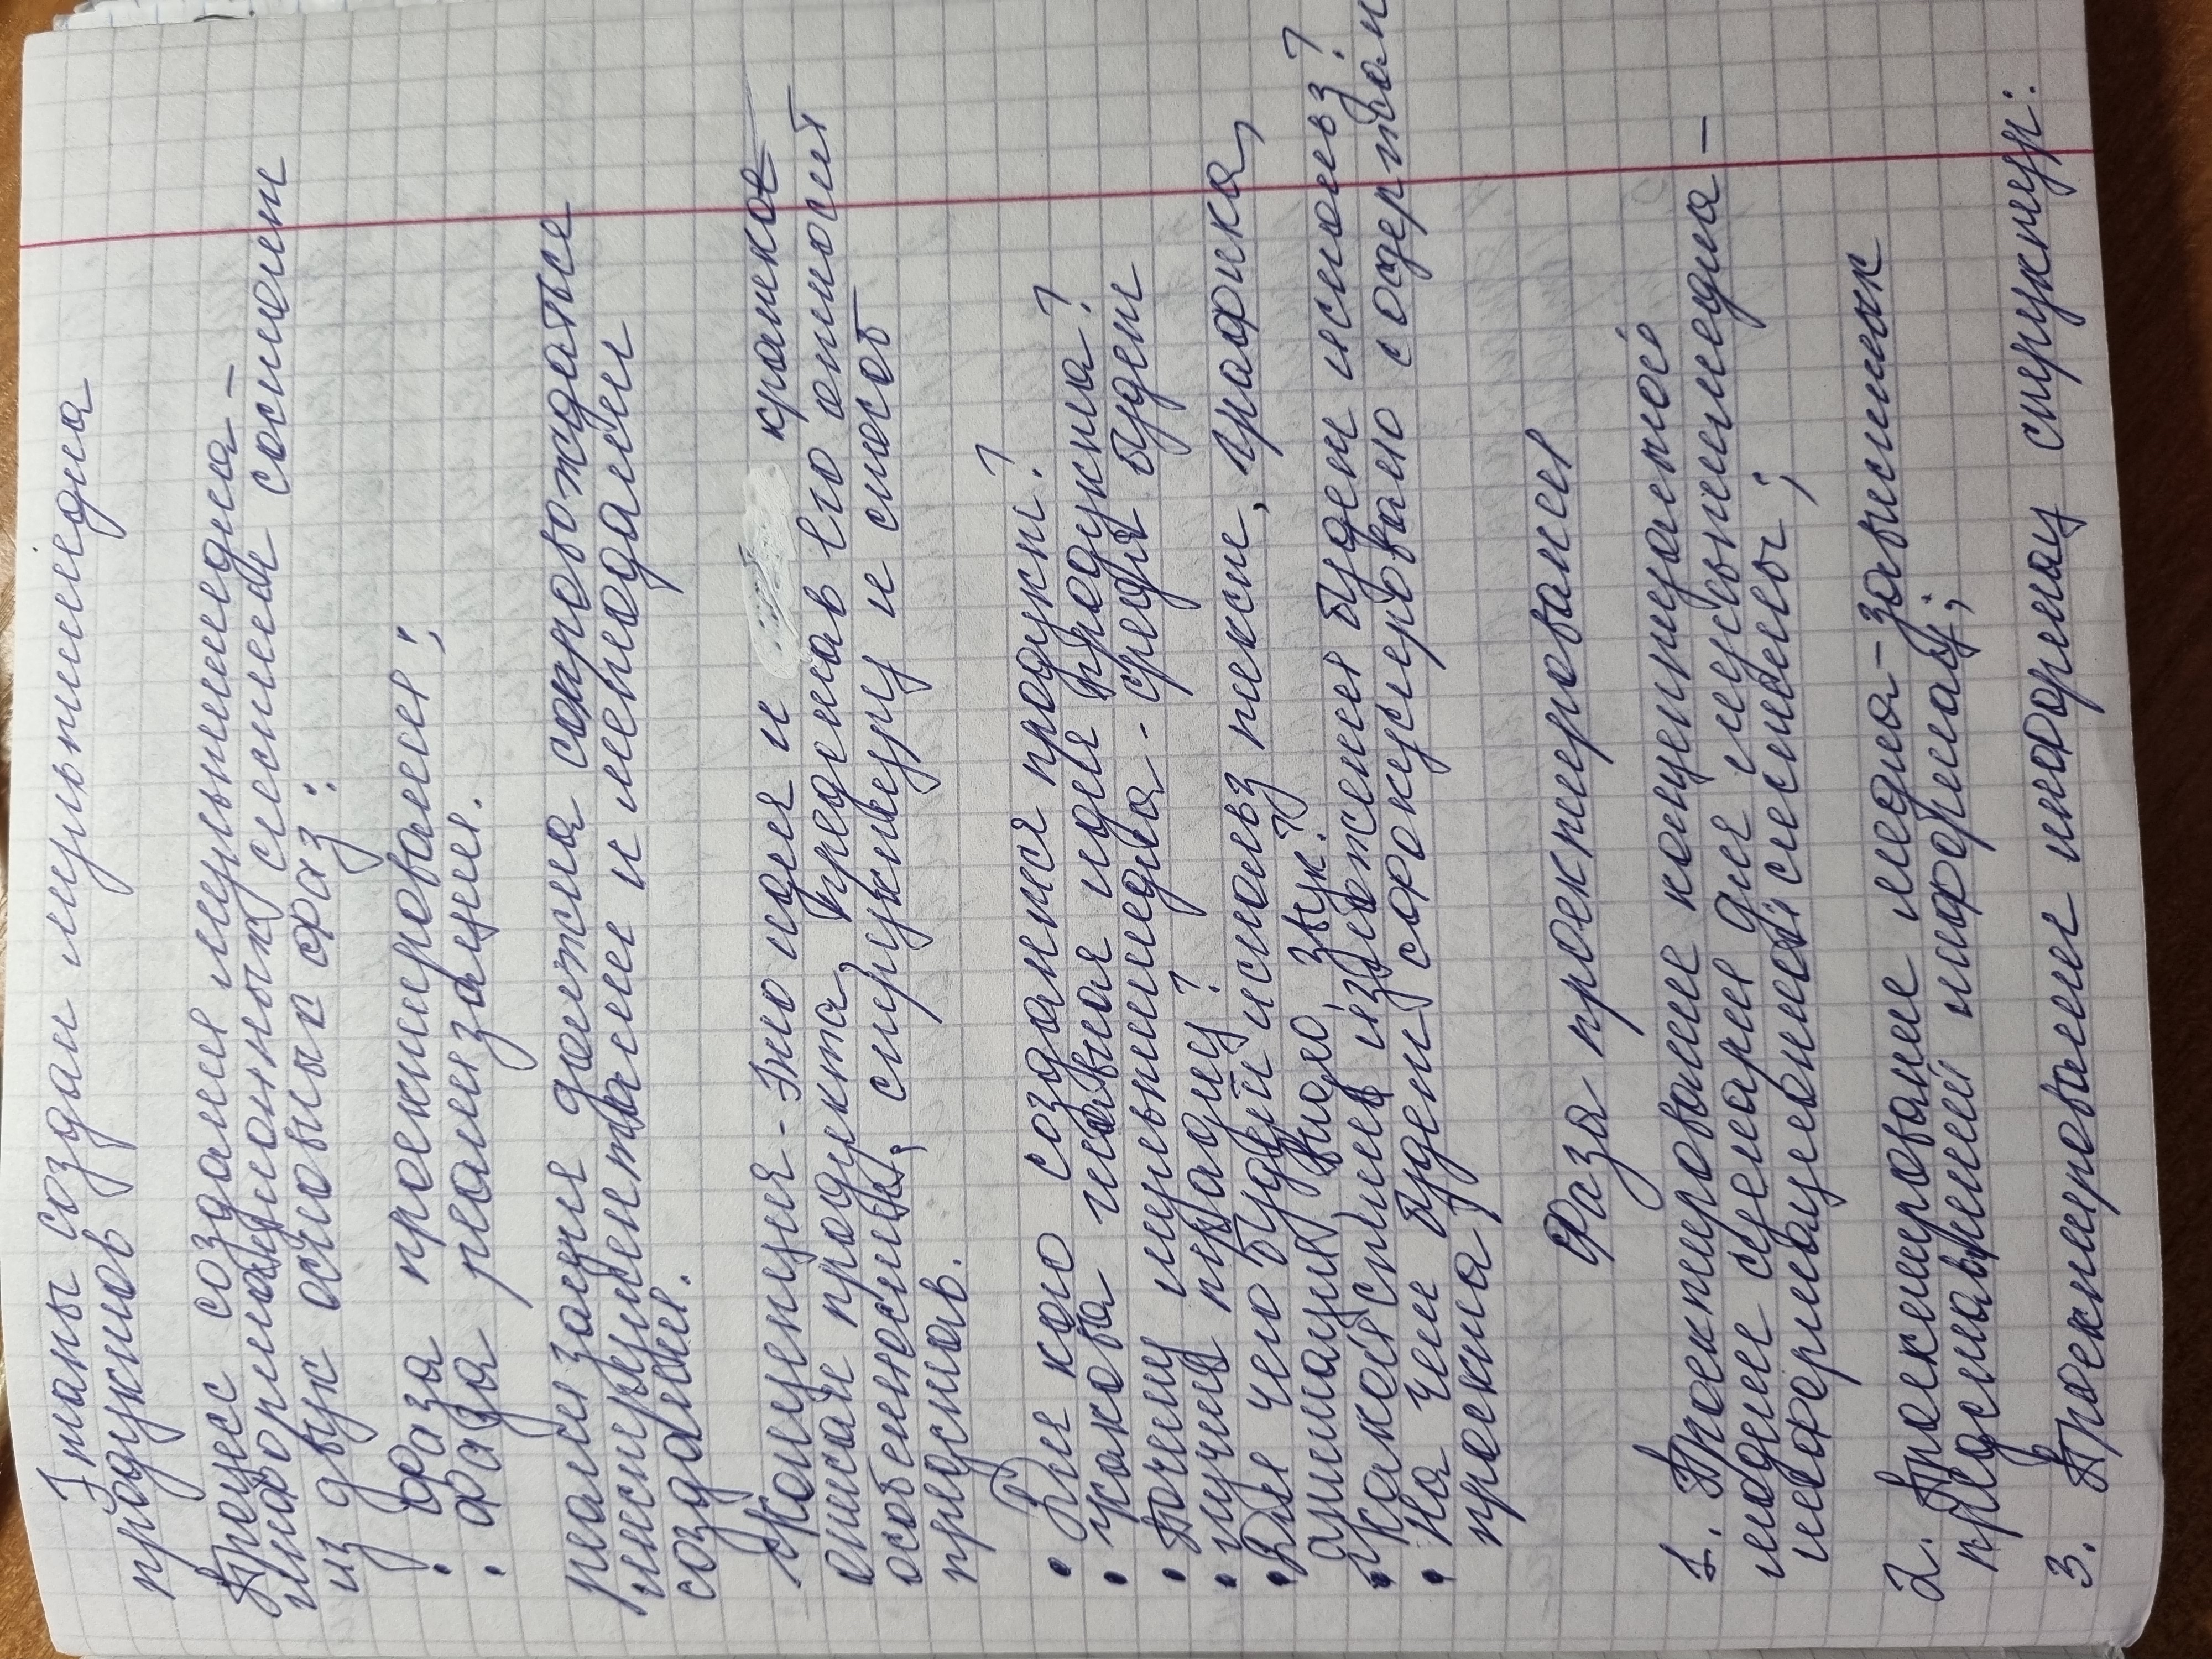 Этапы создан мультимедиа
продуктов
Процесс создания мультимедиа-
информационных систем состоит
из двух основных фаз:
. Фаза проектирования;
. Фаза реализации.
реализация должна сопровождаться
инструментами и методами
создания.
Концепция - это идея и краткое
описан продукта, представ его относит
особенности, структуру и способ
представ.
• Для кого создается продукт?
• Какова главная идея продукта?
• Почему мультимедиа - среда будет
• лучше
• Для чего будет использ текст, графика,
анимация, видео, звук?
• Какой стиль изложения будет использ?
• На чем будет сфокусировано содержан
проекта?
Фаза проектирования
1. Проектирование концептуальной
модели сценария для мультимедиа -
информационной системы;
2. Проектирование медиа-зависимых
представлений информац;
3. Проектировании информац структур: